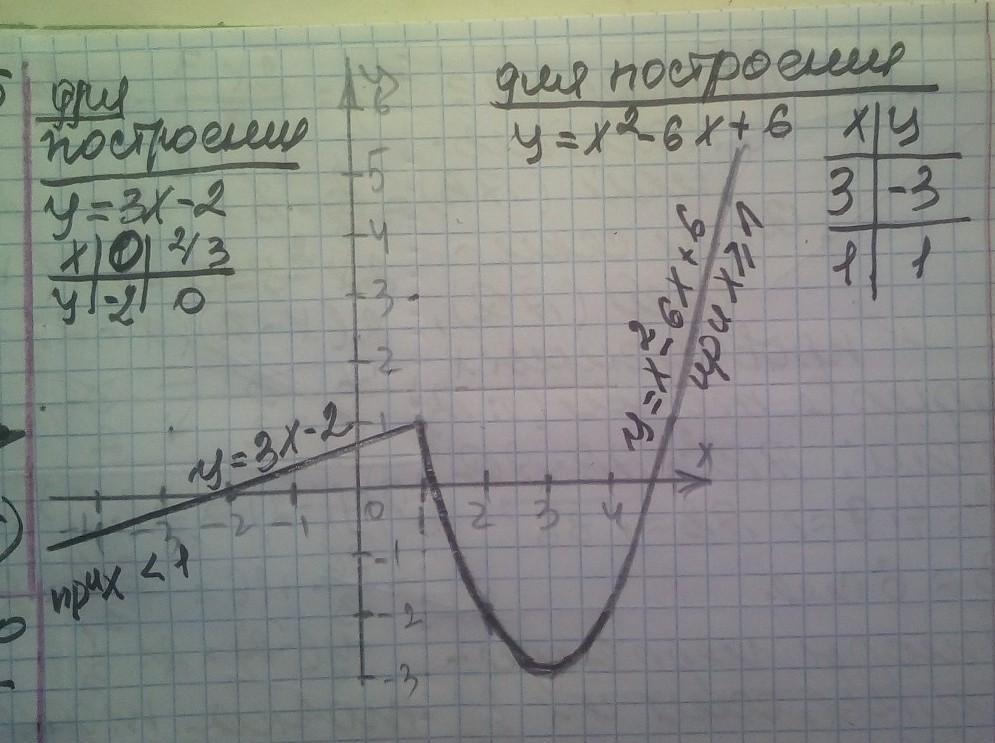 для
построения
y = 3x - 2
x | 0 | 2/3
y | -2 | 0
для построения
y = x² - 6x + 6
x | y
3 | -3
1 | 1
y
6
5
4
3
2
1
y = 3x - 2
при x < 1
y = x² - 6x + 6
при x ≥ 1
x
-4 -3 -2 -1 0 1 2 3 4
-1
-2
-3